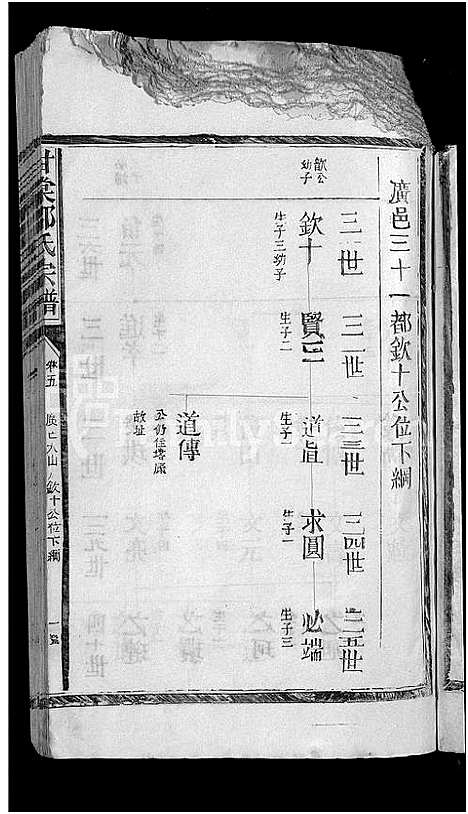 廣邑三十一都欽十公位下綱
三一世
三二世
三三世
三四世
三五世
歆公幼子
欽十
生子三幼子
賢三
生子二
道眞
生子一
求圓
生子一
必端
生子三
道傳
公仍住塔廠故址
甘棠鄧氏宗譜
卷五
欽十公位下綱